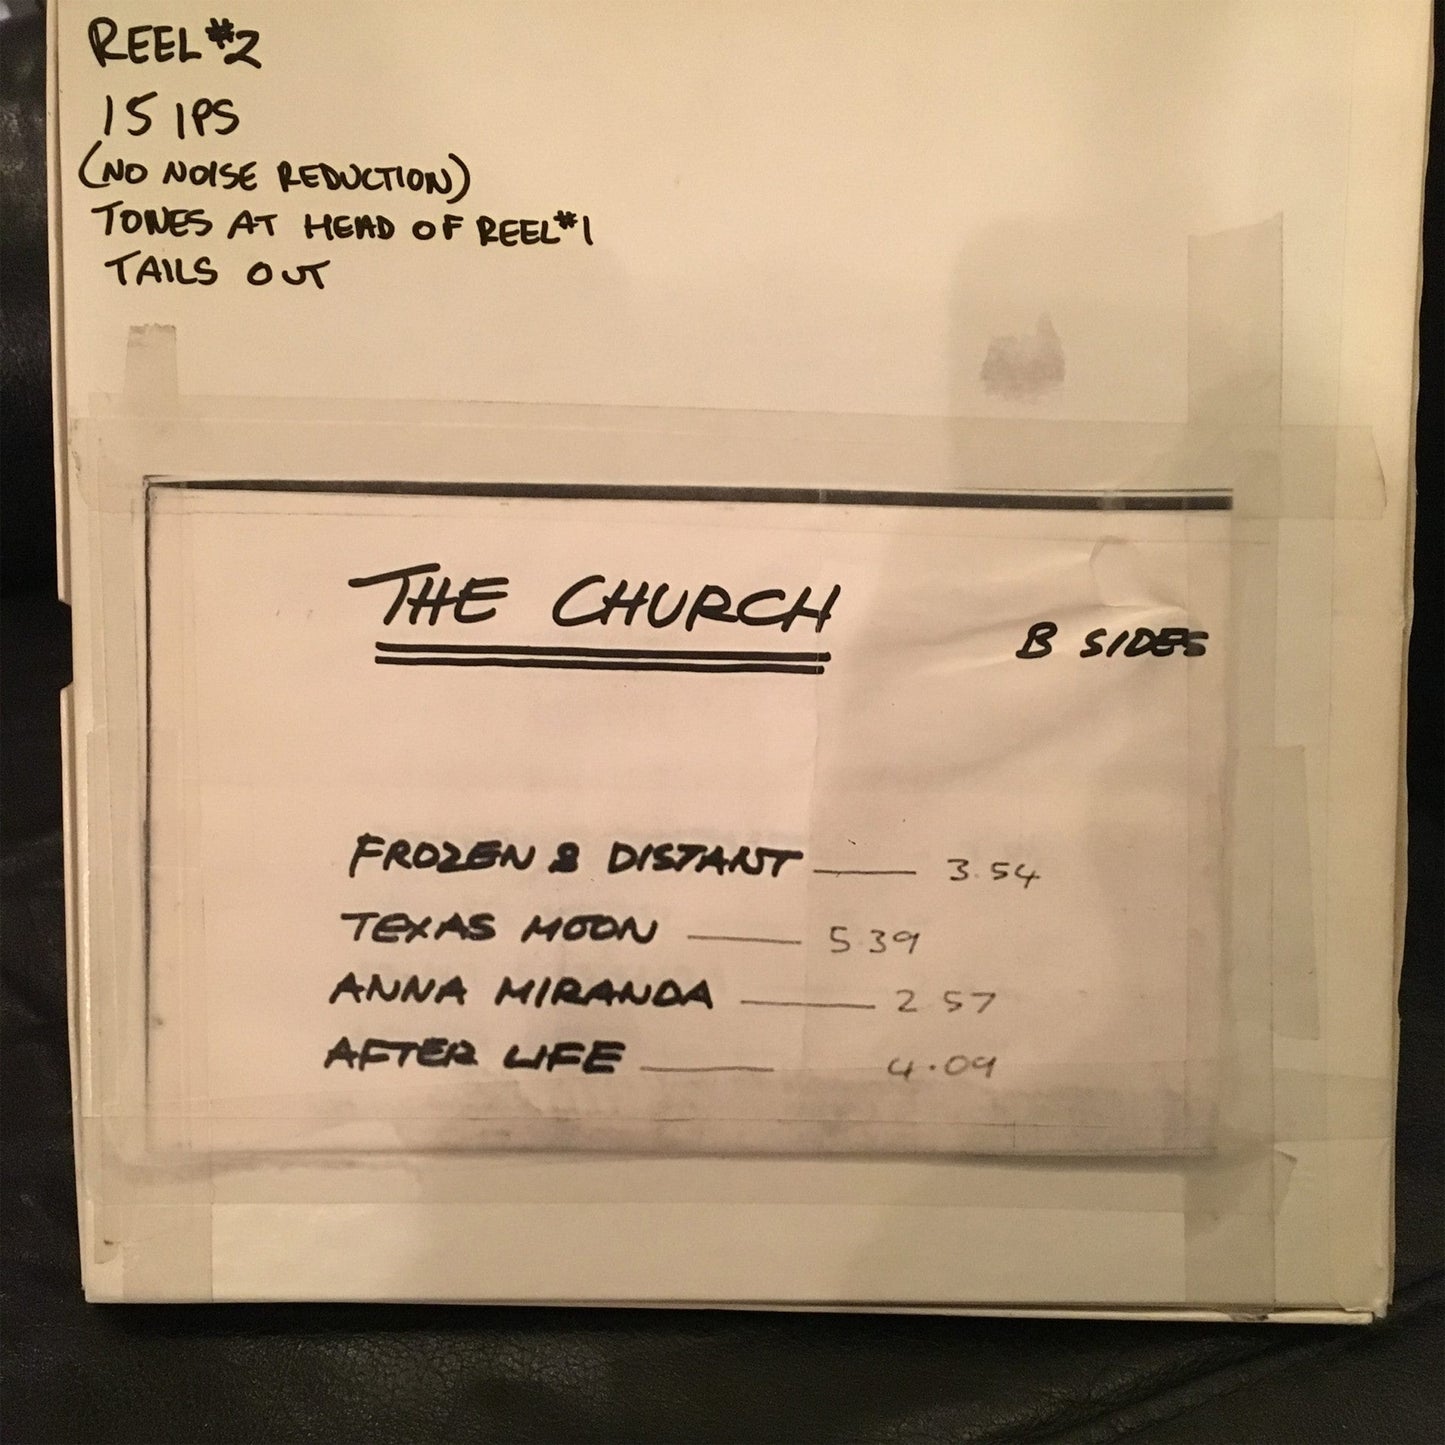 REEL #2
15 IPS
(NO NOISE REDUCTION)
TONES AT HEAD OF REEL #1
TAILS OUT
THE CHURCH
B SIDES
FROZEN & DISTANT — 3.54
TEXAS MOON — 5.39
ANNA MIRANDA — 2.57
AFTER LIFE — 4.09